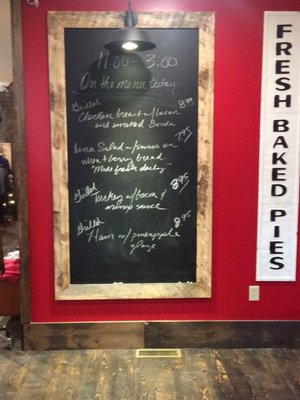 11:00 - 3:00
On the menu today
Grilled
Chicken breast w/bacon 8.99
and smoked Gouda
7.95
Tuna Salad w/swiss on
wheat berry bread
"Made fresh daily"
Grilled 8.95
Turkey w/bacon &
sauce
Grilled 8.95
Ham w/pineapple
glaze
FRESH BAKED PIES